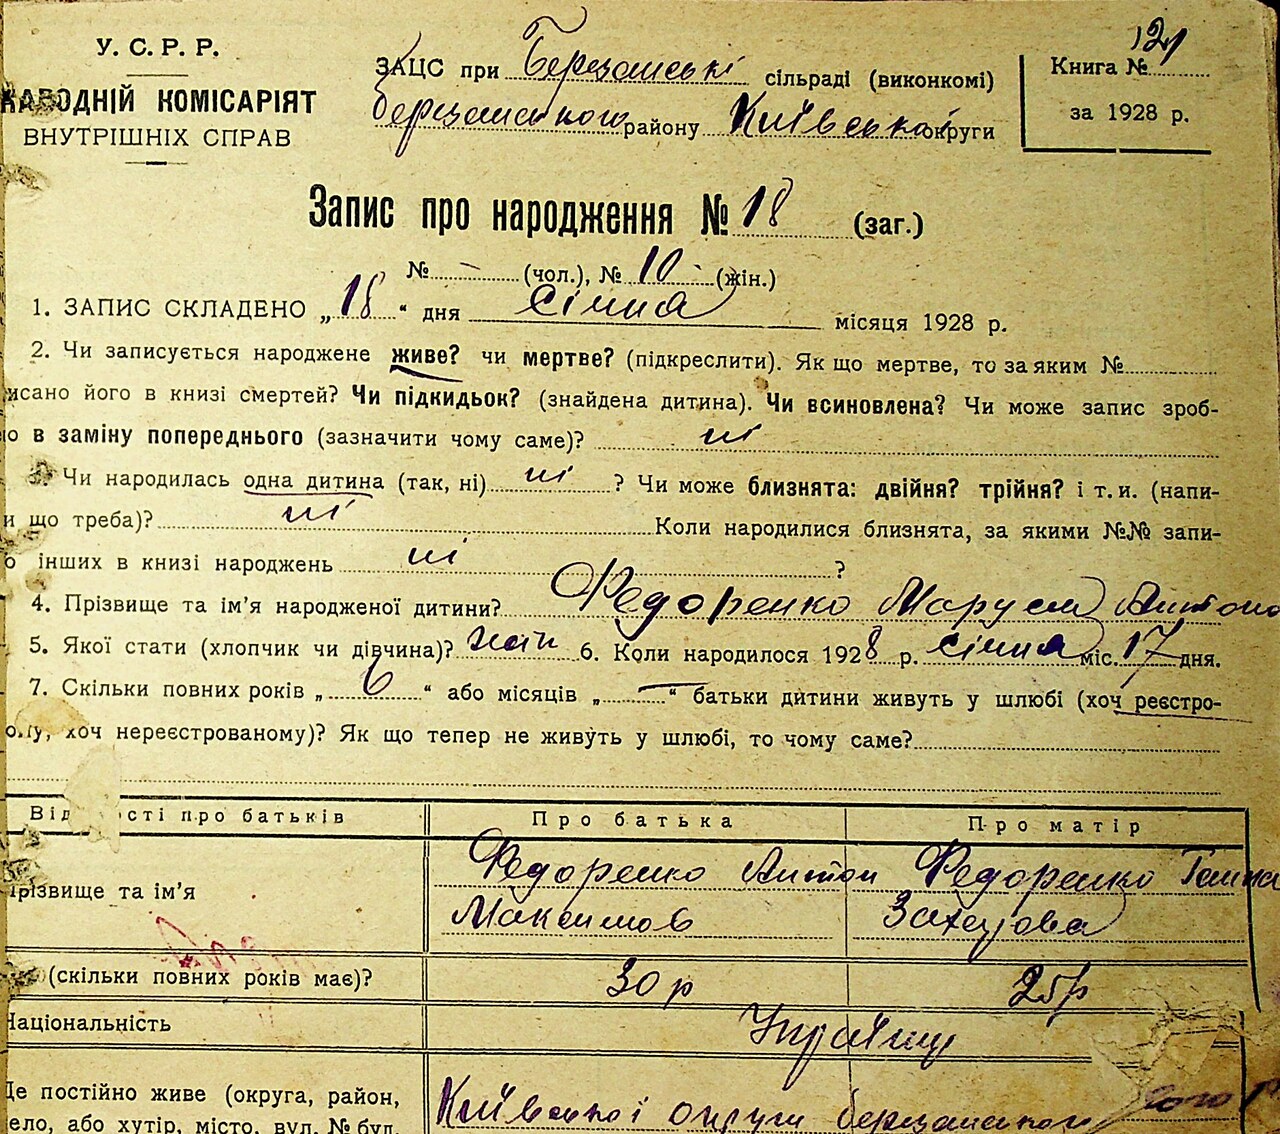 У. С. Р. Р.
НАРОДНІЙ КОМІСАРІЯТ
ВНУТРІШНІХ СПРАВ
ЗАЦС при Березанські сільраді (виконкомі)
Березанського району Київської округи
Книга №
за 1928 р.
Запис про народження № 18 (заг.)
№ – (чол.), № 10 (жін.)
1. ЗАПИС СКЛАДЕНО „18“ дня січня місяця 1928 р.
2. Чи записується народжене живе? чи мертве? (підкреслити). Як що мертве, то за яким №
исано його в книзі смертей? Чи підкидьок? (знайдена дитина). Чи всиновлена? Чи може запис зроб-
о в заміну попереднього (зазначити чому саме)? ні
3. Чи народилась одна дитина (так, ні) ні ? Чи може близнята: двійня? трійня? і т. и. (напи-
и що треба)? ні Коли народилися близнята, за якими №№ запи-
о інших в книзі народжень ні ?
4. Прізвище та ім'я народженої дитини? Федоренко Маруся Антоно
5. Якої стати (хлопчик чи дівчина)? жін 6. Коли народилося 1928 р. січня міс. 17 дня.
7. Скільки повних років „ 6 “ або місяців „ – “ батьки дитини живуть у шлюбі (хоч реєстро-
ому, хоч нереєстрованому)? Як що тепер не живуть у шлюбі, то чому саме?
Від ості про батьків Про батька Про матір
Прізвище та ім'я
Федоренко Антон Федоренко Ганна
Максимов Захарова
(скільки повних років має)? 30 р 25 р
Національність Українці
Де постійно живе (округа, район,
село, або хутір, місто, вул. № буд.
Київської округи березанського